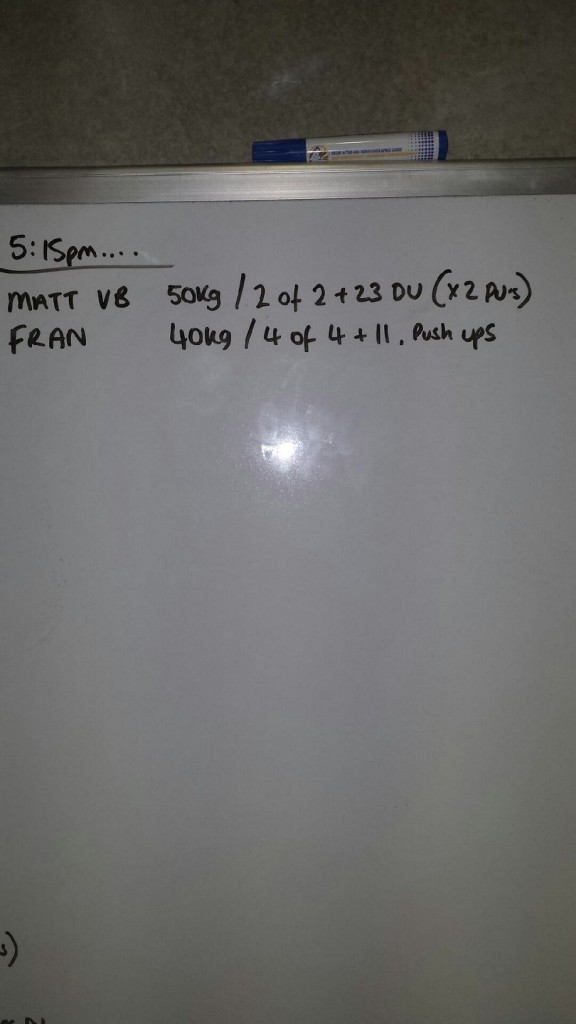 5:15pm....
MATT VB 50kg / 2 of 2 + 23 DU (x2 PU's)
FRAN 40kg / 4 of 4 + 11. Push ups
s)